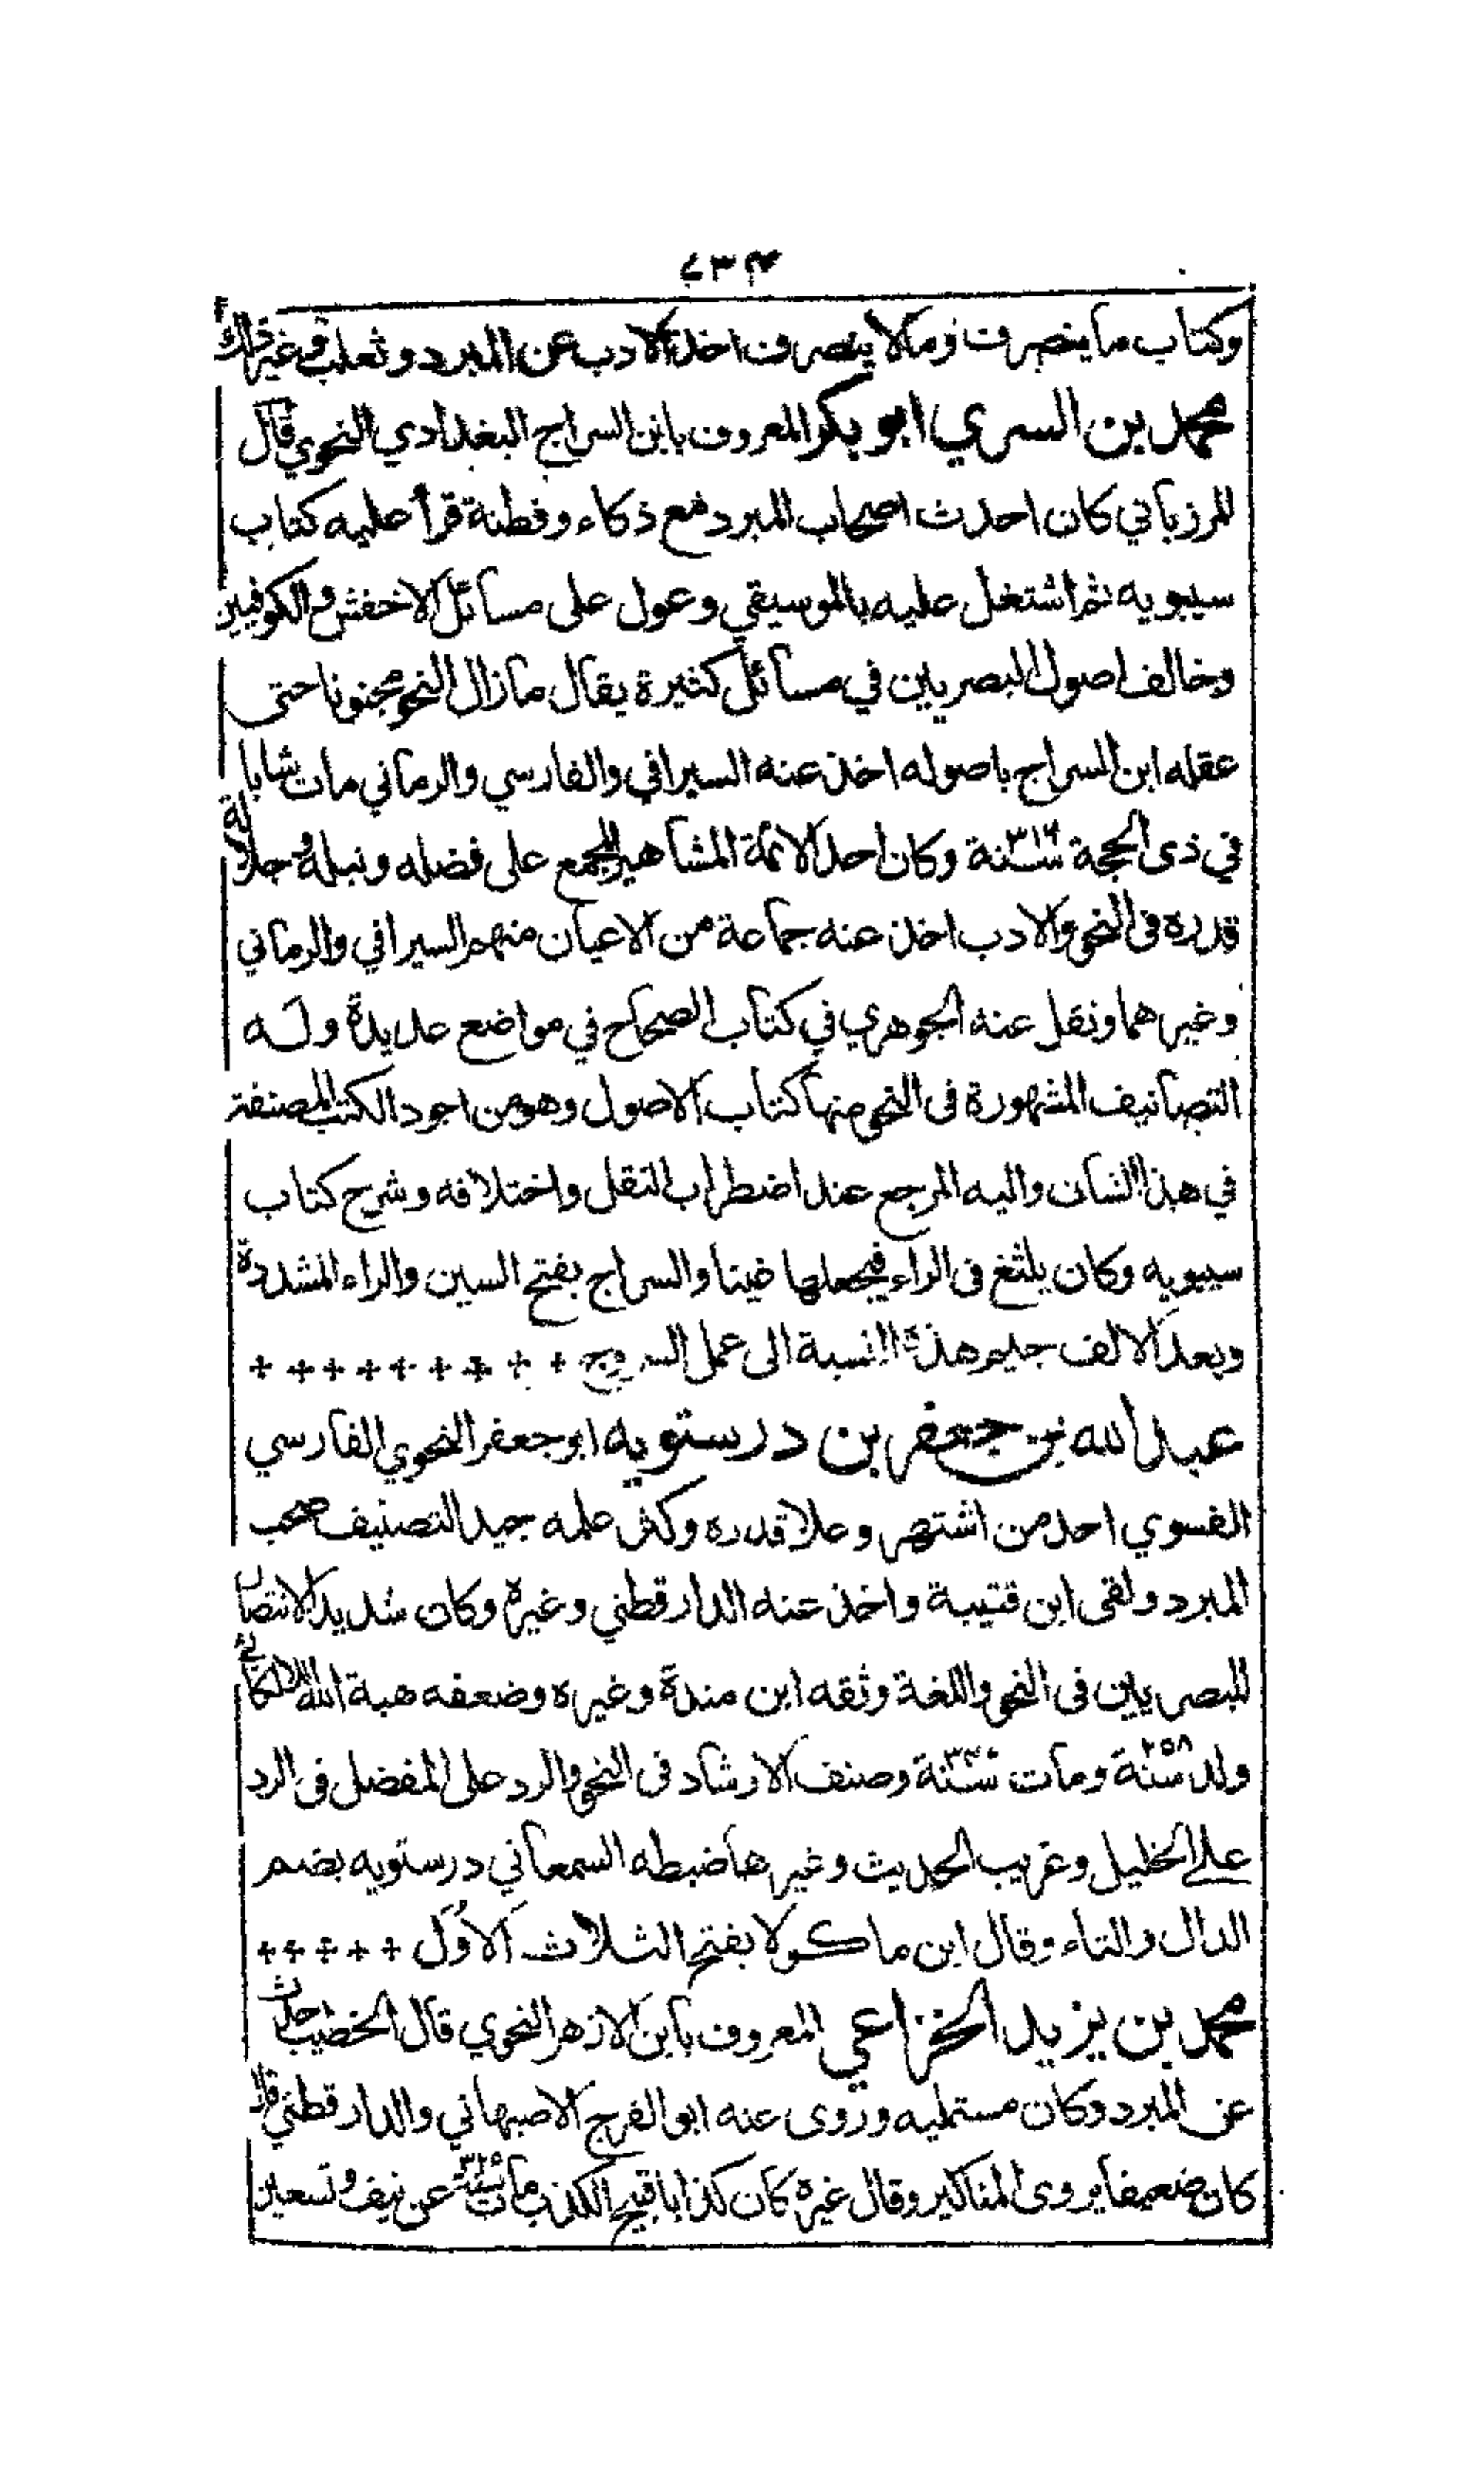 ٤٣٤
وكتاب ما ينصرف وما لا ينصرف اخذ الادب عن المبرد وثعلب وغير ذلك
محمد بن السري ابو بكر المعروف بابن السراج البغدادي النحوي قال
المرزباني كان احدث اصحاب المبرد مع ذكاء وفطنة قرأ عليه كتاب
سيبويه ثم اشتغل عليه بالموسيقي وعول على مسائل الاخفش والكوفيين
وخالف اصول البصريين في مسائل كثيرة يقال ما زال النحو مجنونا حتى
عقله ابن السراج باصوله اخذ عنه السيرافي والفارسي والرماني مات شابا
في ذى الحجة سنة ٣١٦ وكان احد الائمة المشاهير المجمع على فضله ونبله وجلالة
قدره فى النحو والادب اخذ عنه جماعة من الاعيان منهم السيرافي والرماني
وغيرهما ونقل عنه الجوهري في كتاب الصحاح في مواضع عديدة وله
التصانيف المشهورة فى النحو منها كتاب الاصول وهو من اجود الكتب المصنفة
في هذا الشان واليه المرجع عند اضطراب النقل واختلافه وشرح كتاب
سيبويه وكان يلثغ فى الراء فيجعلها غينا والسراج بفتح السين والراء المشددة
وبعد الالف جيم هذه النسبة الى عمل السروج + + + + + + + + +
عبد الله بن جعفر بن درستويه ابو جعفر النحوي الفارسي
الفسوي احد من اشتهر وعلا قدره وكثر علمه جيد التصنيف صحب
المبرد ولقى ابن قتيبة واخذ عنه الدارقطني وغيره وكان شديد الانتصار
للبصريين فى النحو واللغة وثقه ابن مندة وغيره وضعفه هبة الله اللالكائي
ولد سنة ٢٥٨ ومات سنة وصنف الارشاد فى النحو والرد على المفضل فى الرد
على الخليل وغريب الحديث وغيرها ضبطه السمعاني درستويه بضم
الدال والتاء وقال ابن ماكولا بفتح الثلاث الاول + + + + +
محمد بن يزيد الخزاعي المعروف بابن الازهر النحوي قال الخطيب حدث
عن المبرد وكان مستمليه وروى عنه ابو الفرج الاصبهاني والدارقطني قال
كان ضعيفا يروى المناكير وقال غيره كان كذابا قبيح الكذب مات سنة ٣٢٥ عن نيف وتسعين